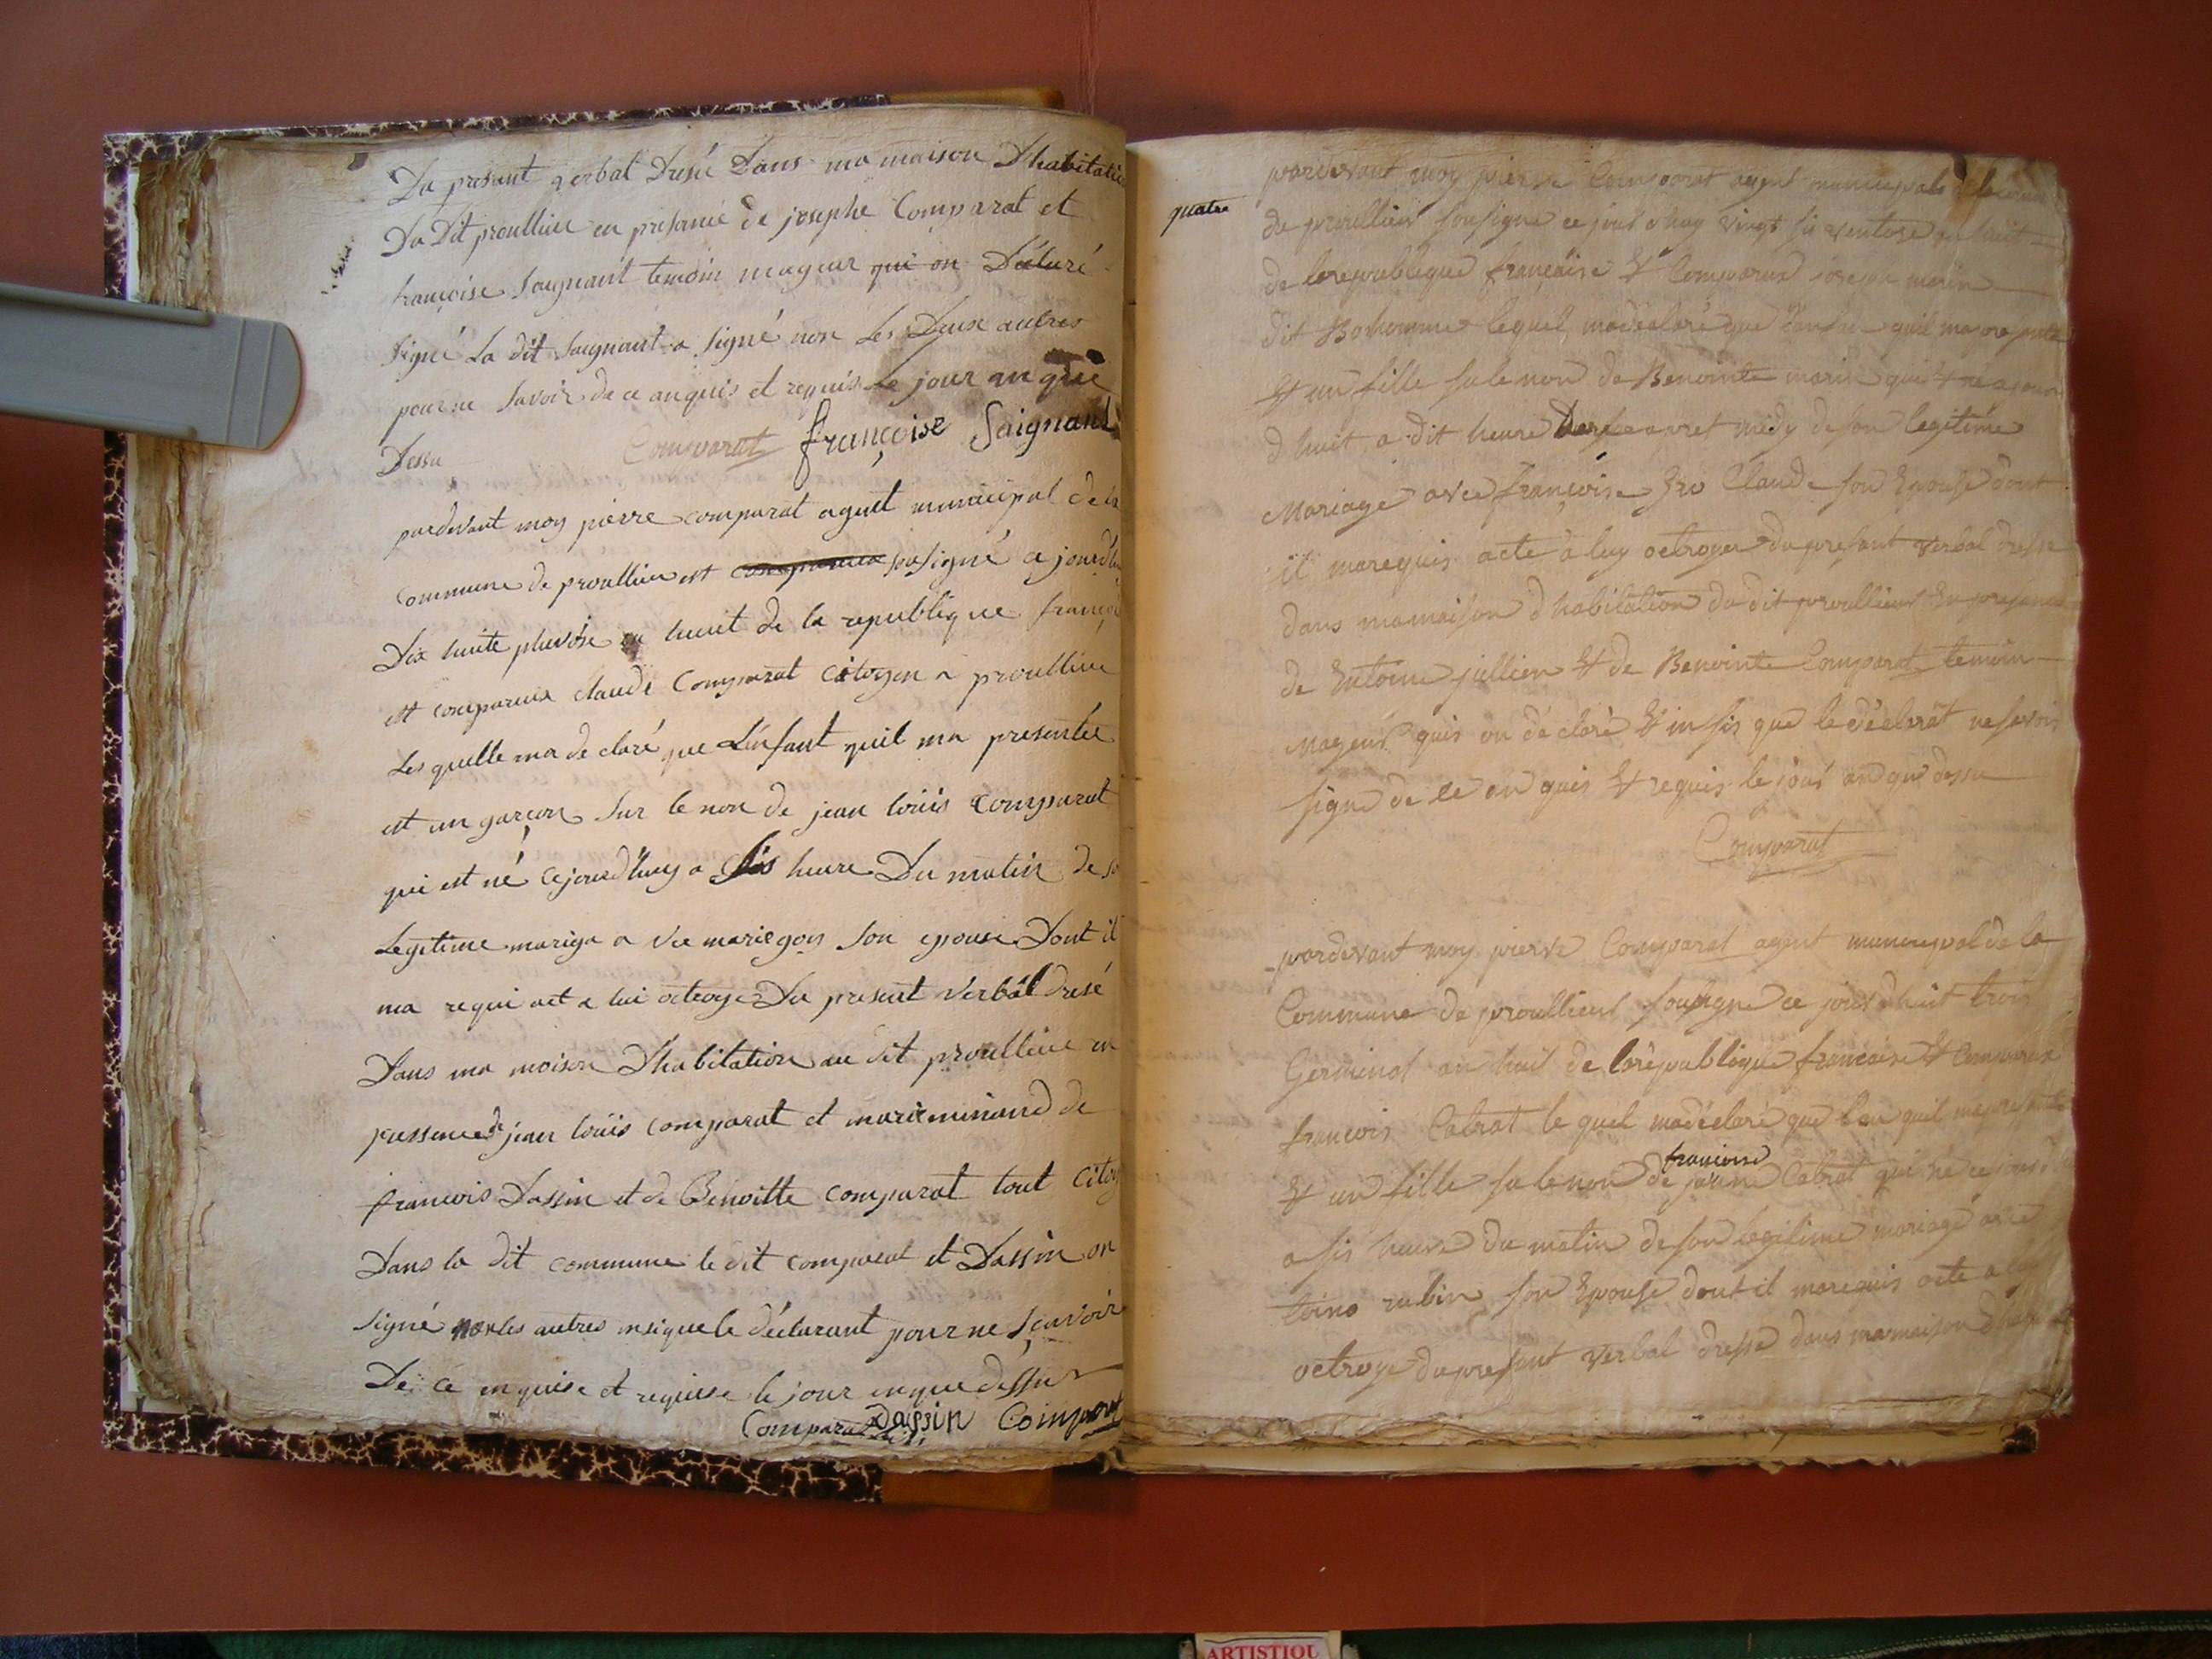 Du present verbal Dresé Dans ma maison Dhabitatio
Du Dit proullieu en presance de josephe Comparat et
françoise Saignant temoin mageur qui on Déclaré
signé La dit Saignant a signé non Les Deux autres
pour ne savoir de ce anquis et requis Le jour an que
Dessu Comparat françoise Saignant
pardevant moy pierre comparat agent municipal de la
commune de proullieu est sousigné a jourdhu
Dix huite pluvose en huit de la republique françoi
est comparu claude Comparat Citoyen a proullieu
Les quelle ma declaré que Lenfant quil ma presentée
est un garçon sur le non de jean loüis comparat
qui est né cejourdhuy a sis heure Du matin de so
Legitime mariga a vec mariegoy son epouse Dont il
ma requi act a lui octroye Du present verbal dresé
Dans ma moison Dhabitation au dit proullieu en
pressence de jean loüis comparat et marie miniand de
francois Dassin et de Benoitte comparat tout citoy
Dans la dit commune le dit comparat et Dassin on
signé non les autres insique le déclarant pour ne sçavoir
De ce enquise et requise le jour en que dessu
Comparat Dassin Comparat
quatre
pardevant moy pierre Comparat agent municipale de la com
de proullieu sousigne ce jour dhuy vingt sis ventose an huit
de la republique française Et Comparux joseph marin
dit Bohomme lequel madéclaré que lanfan quil ma pre
Et un fille su le non de Benointe marin qui
dhuit a dit heure apret midy de son legitime
Mariage avec françoise Claude son Epouse dont
il ma requis acte a luy octroyer du presant verbal dresse
dans mamaison dhabitation du dit proullieu En presence
de Entoine jullien Et de Benointe Comparat temoin
Mageur quis on déclaré Et in sis que le déclarat ne savoir
signe de ce en quis Et requis le jour an que dessu
Comparat
pardevant moy pierre Comparat agent municipal de la
Commune de proullieu sousigne ce jour dhuit trois
Germinal an huit de la republique francaise Et Comparux
francois Cabrat le quel madéclaré que lan quil mapresente
Et un fille su le non de françoise jeanne Cabrat qui ne ce jour
a sis heure du matin de son legitime mariage avec
rubin son Epouse dont il ma requis acte a luy
octroye du presant verbal dresse dans ma maison dhabi
ARTISTIQU